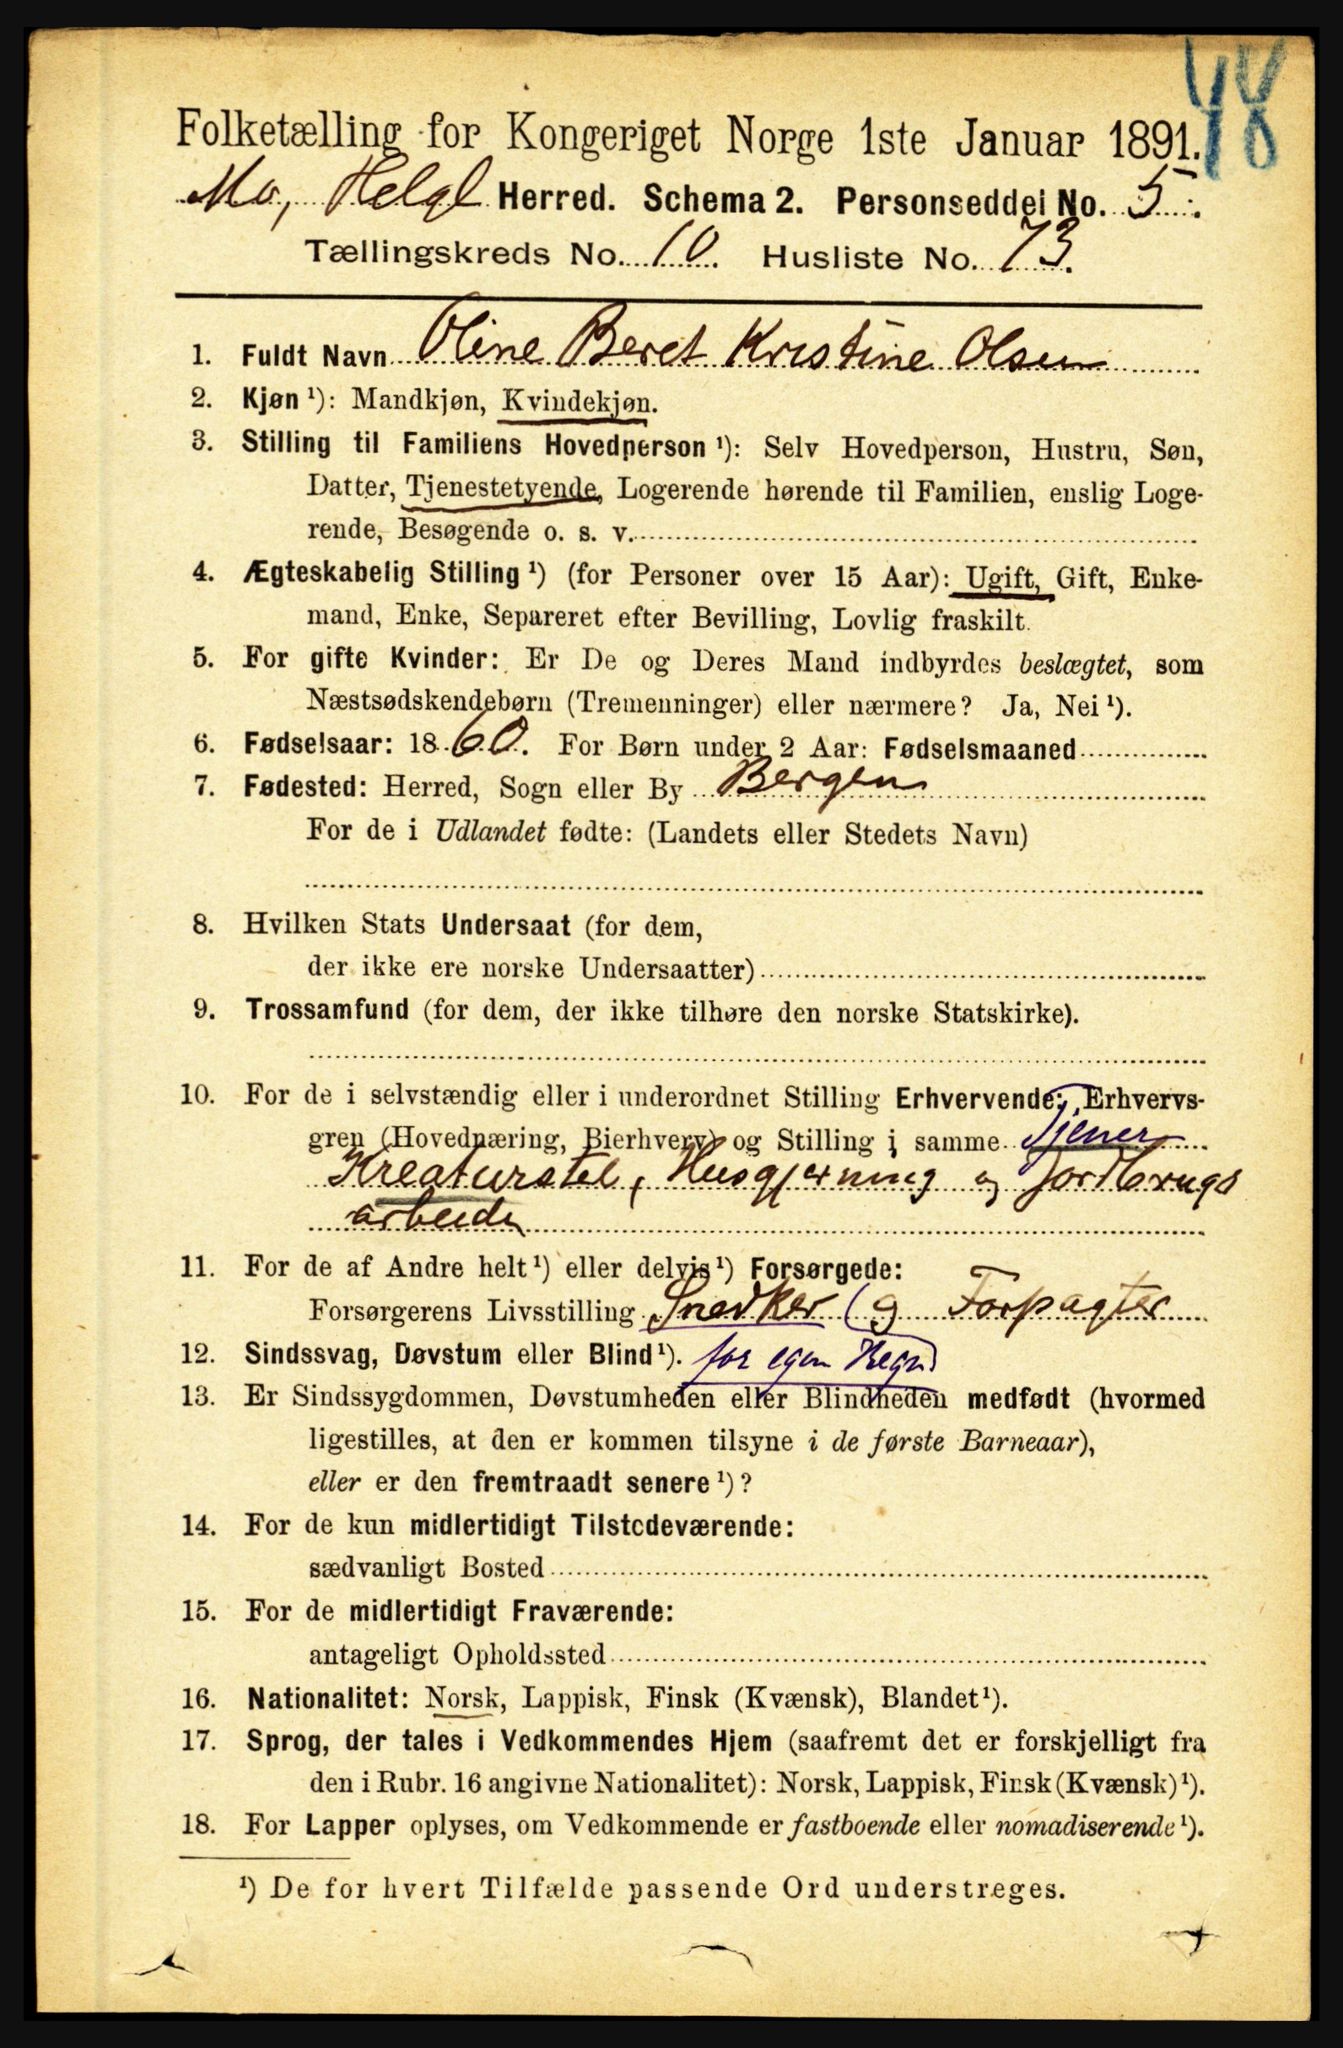 48
Folketælling for Kongeriget Norge 1ste Januar 1891.
Mo, Helgl Herred. Schema 2. Personseddel No. 5.
Tællingskreds No. 10. Husliste No. 73.
1. Fuldt Navn Oline Beret Kristine Olsen
2. Kjøn ¹): Mandkjøn, Kvindekjøn.
3. Stilling til Familiens Hovedperson ¹): Selv Hovedperson, Hustru, Søn,
Datter, Tjenestetyende, Logerende hørende til Familien, enslig Loge-
rende, Besøgende o. s. v.
4. Ægteskabelig Stilling ¹) (for Personer over 15 Aar): Ugift, Gift, Enke-
mand, Enke, Separeret efter Bevilling, Lovlig fraskilt.
5. For gifte Kvinder: Er De og Deres Mand indbyrdes beslægtet, som
Næstsødskendebørn (Tremenninger) eller nærmere? Ja, Nei ¹).
6. Fødselsaar: 1860. For Børn under 2 Aar: Fødselsmaaned
7. Fødested: Herred, Sogn eller By Bergen
For de i Udlandet fødte: (Landets eller Stedets Navn)
8. Hvilken Stats Undersaat (for dem,
der ikke ere norske Undersaatter)
9. Trossamfund (for dem, der ikke tilhøre den norske Statskirke).
10. For de i selvstændig eller i underordnet Stilling Erhvervende: Erhvervs-
gren (Hovednæring, Bierhverv) og Stilling i samme Tjener
Kreaturstel, Husgjerning og Jordbrugs
arbeide
11. For de af Andre helt ¹) eller delvis ¹) Forsørgede:
Forsørgerens Livsstilling Snedker og Forpagter
12. Sindssvag, Døvstum eller Blind ¹). for egen Regn
13. Er Sindssygdommen, Døvstumheden eller Blindheden medfødt (hvormed
ligestilles, at den er kommen tilsyne i de første Barneaar),
eller er den fremtraadt senere ¹)?
14. For de kun midlertidigt Tilstedeværende:
sædvanligt Bosted
15. For de midlertidigt Fraværende:
antageligt Opholdssted
16. Nationalitet: Norsk, Lappisk, Finsk (Kvænsk), Blandet ¹).
17. Sprog, der tales i Vedkommendes Hjem (saafremt det er forskjelligt fra
den i Rubr. 16 angivne Nationalitet): Norsk, Lappisk, Finsk (Kvænsk) ¹).
18. For Lapper oplyses, om Vedkommende er fastboende eller nomadiserende ¹).
¹) De for hvert Tilfælde passende Ord understreges.